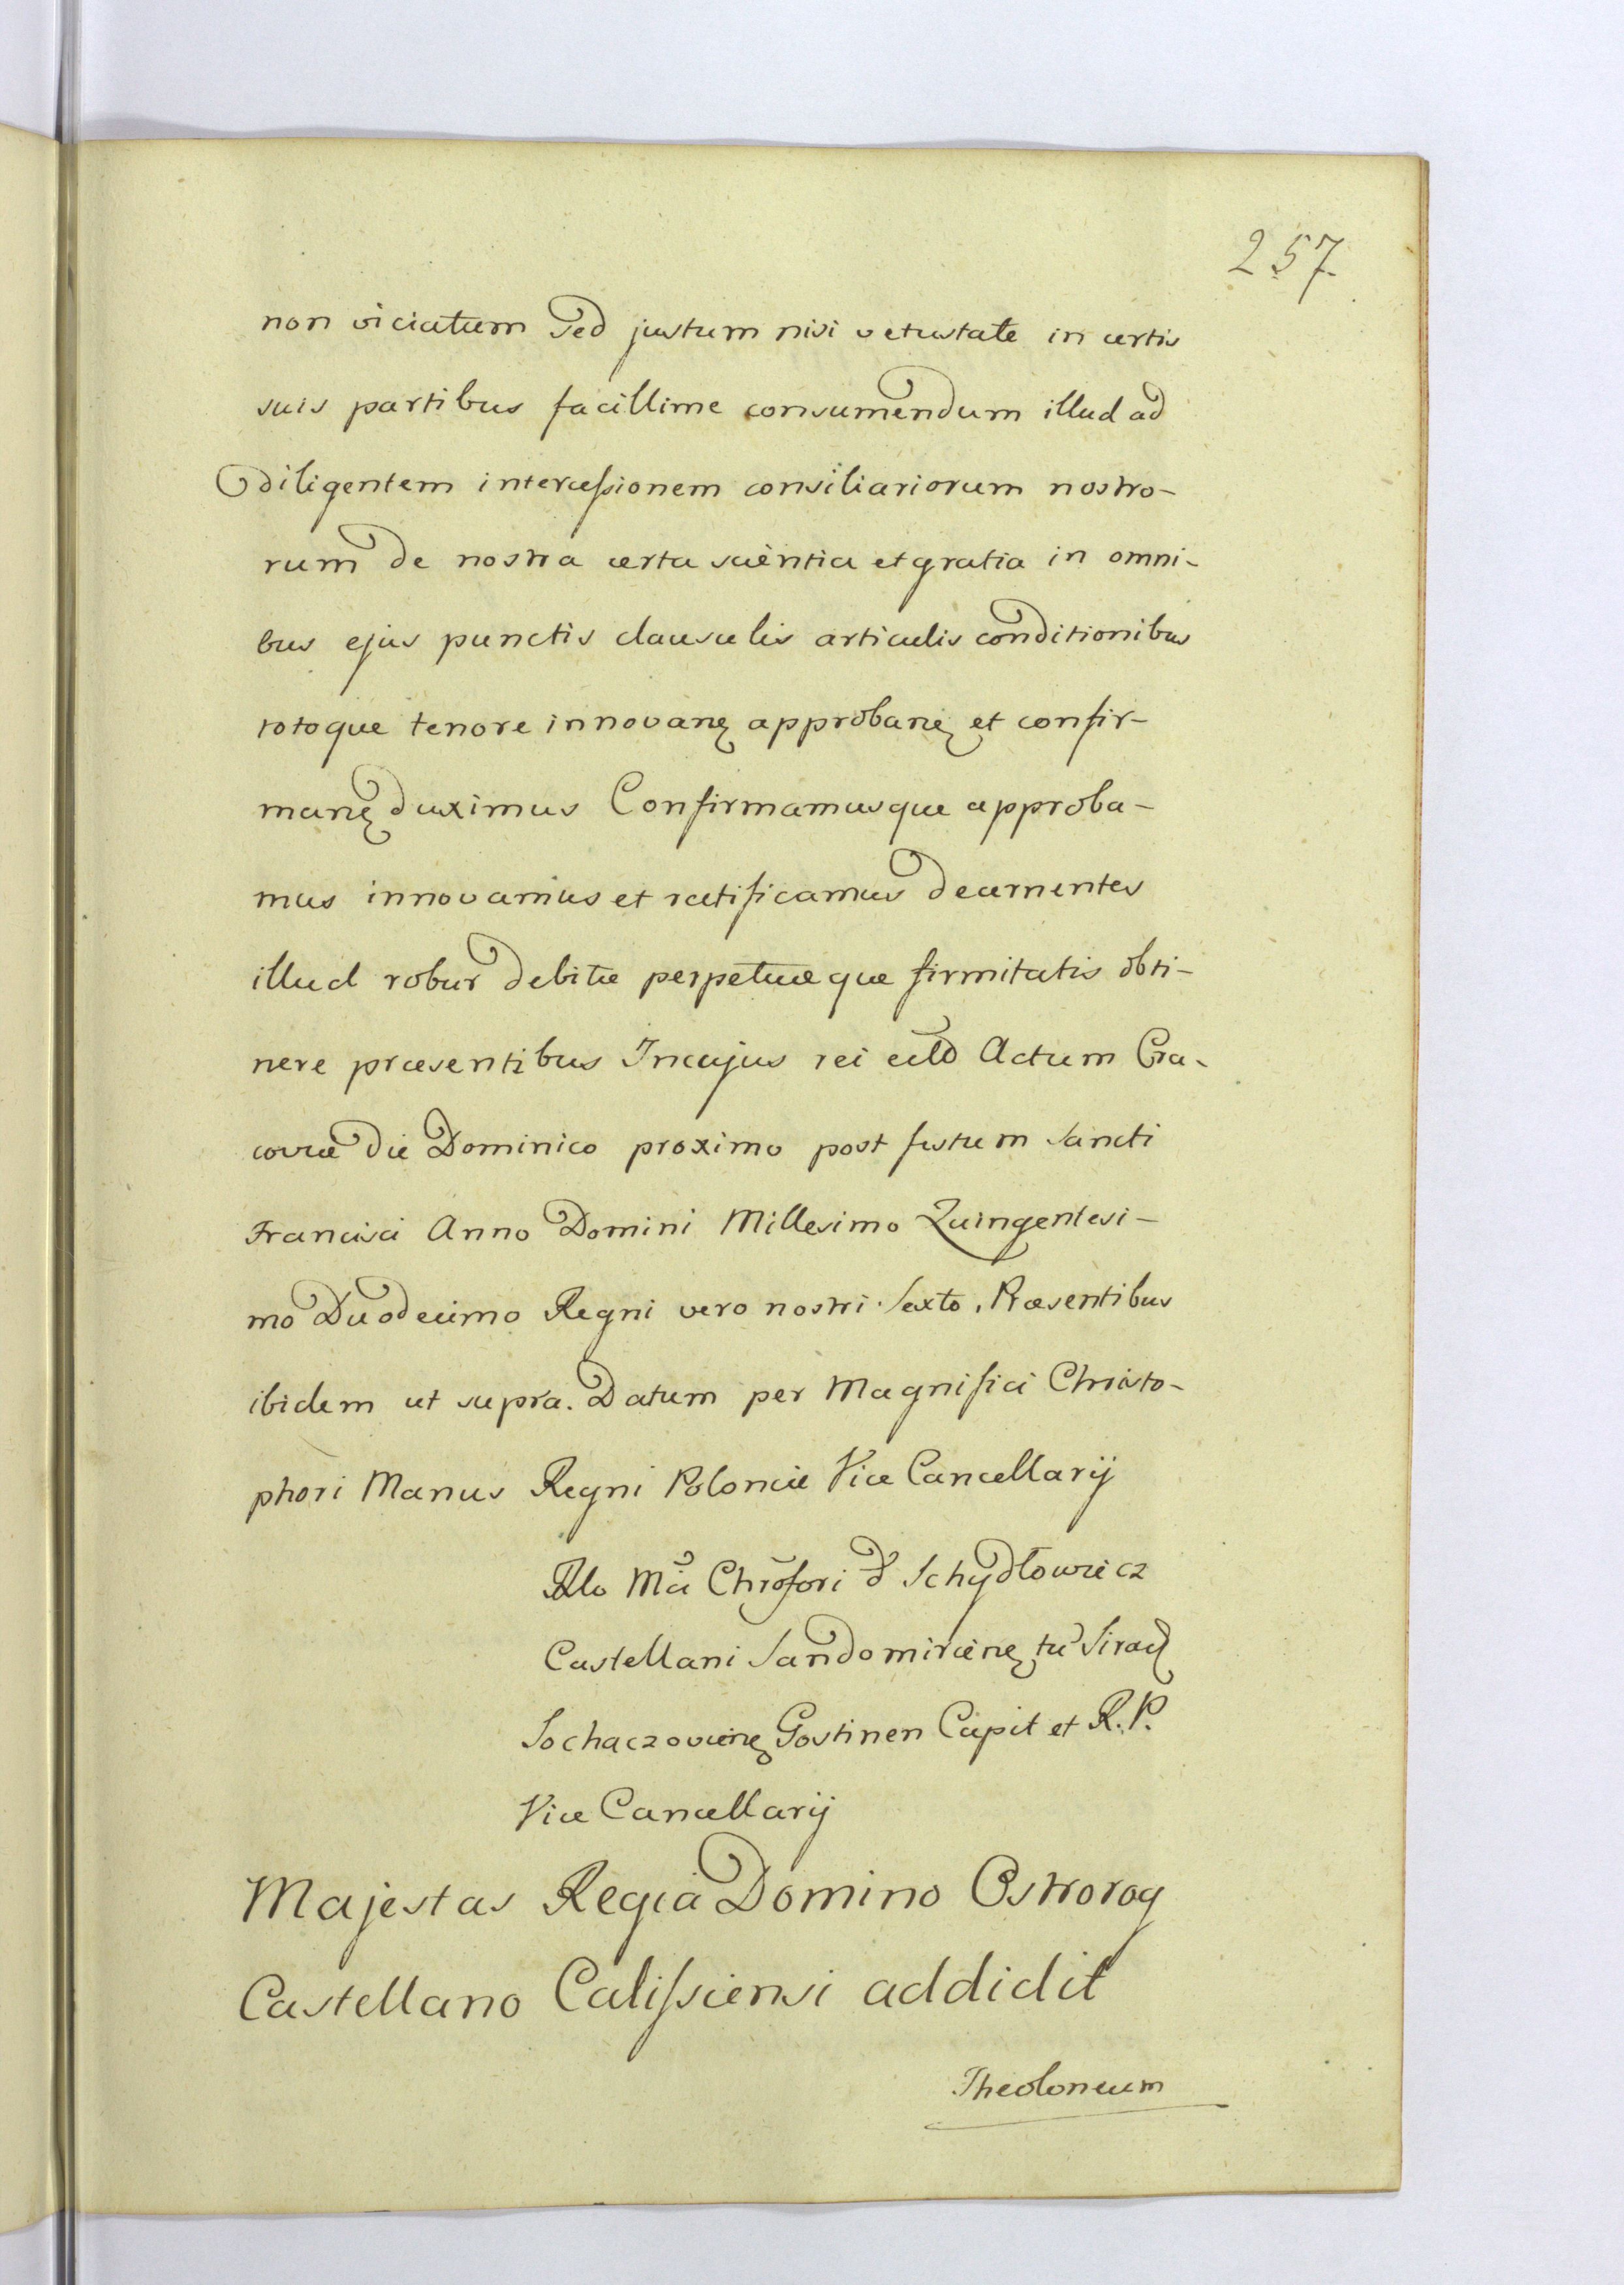 257.
non viciatum sed justum nisi vetustate in certis
suis partibus facillime consumendum illud ad
diligentem intercessionem consiliariorum nostro-
rum de nostra certa scientia et gratia in omni-
bus ejus punctis clausulis articulis conditionibus
totoque tenore innovanę approbanę et confir-
manę duximus Confirmamusque approba-
mus innovamus et ratificamus decernentes
illud robur debitæ perpetuæque firmitatis obti-
nere præsentibus Incujus rei Actum Cra-
coviæ die Dominico proximo post festum Sancti
Francisci Anno Domini Millesimo Quingentesi-
mo Duodecimo Regni vero nostri Sexto, Præsentibus
ibidem ut supra. Datum per Magnifici Christo-
phori Manus Regni Poloniæ Vice Cancellarij
Rlo Mci Chrofori d Schydłowiecz
Castellani Sandomirienę Siradę
Sochaczovienę Gostinen Capit et R. P.
Vice Cancellarij
Majestas Regia Domino Ostrorog
Castellano Calissiensi addidit
Theoloneum